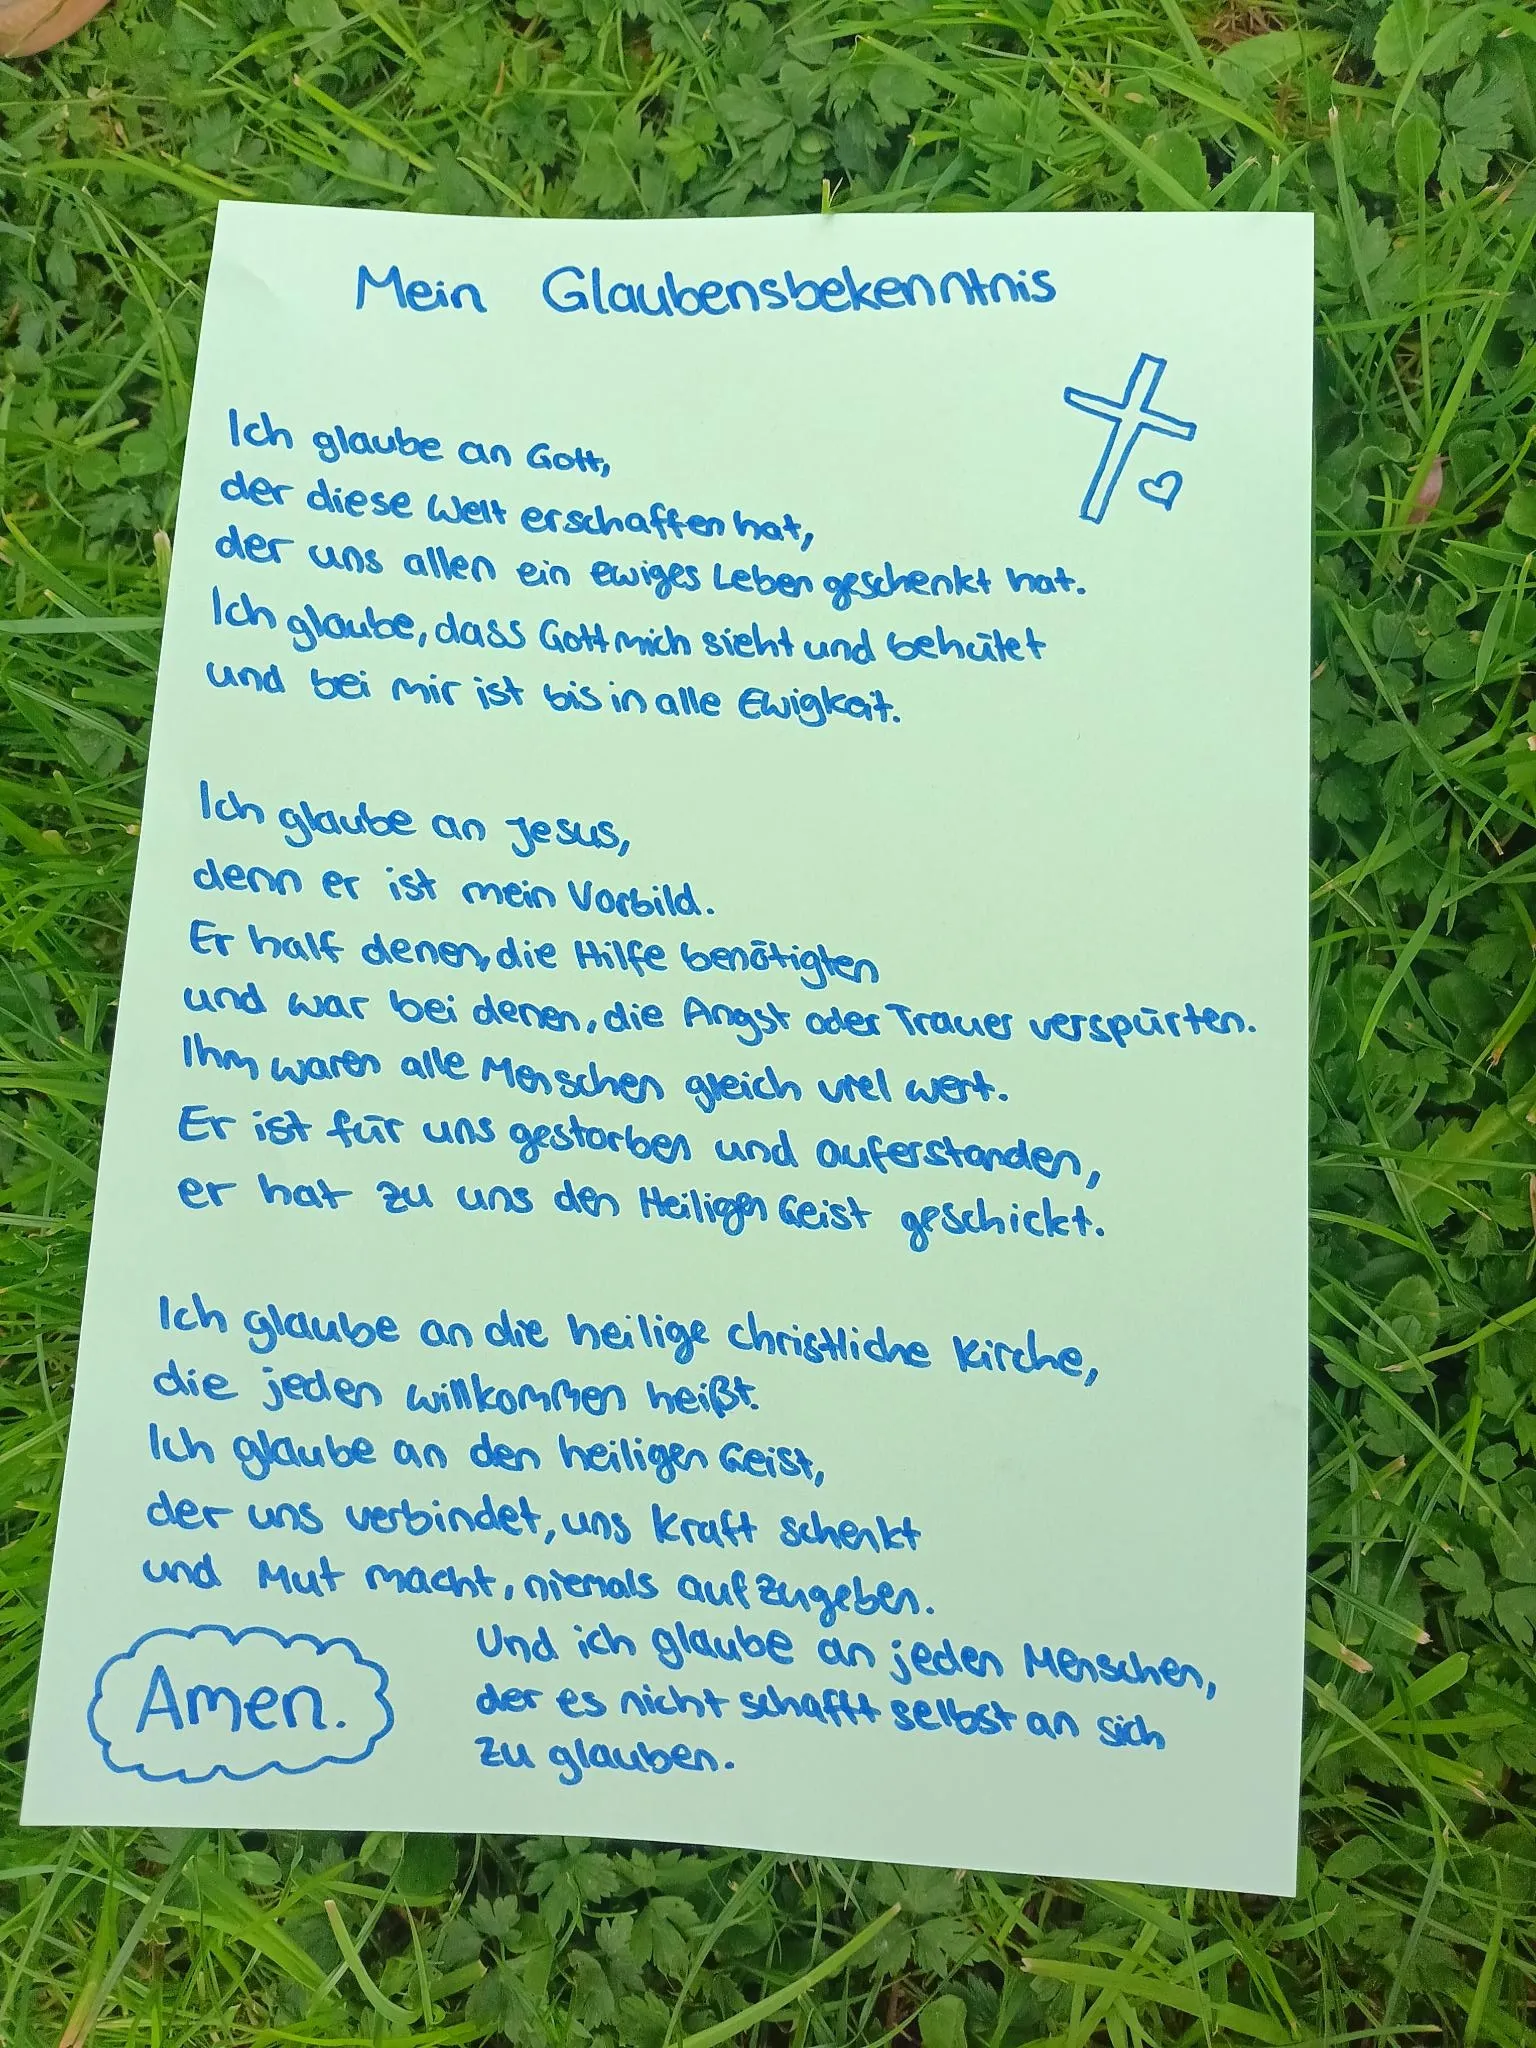 Mein Glaubensbekenntnis
Ich glaube an Gott,
der diese Welt erschaffen hat,
der uns allen ein ewiges Leben geschenkt hat.
Ich glaube, dass Gott mich sieht und behütet
und bei mir ist bis in alle Ewigkeit.
Ich glaube an Jesus,
denn er ist mein Vorbild.
Er half denen, die Hilfe benötigten
und war bei denen, die Angst oder Trauer verspürten.
Ihm waren alle Menschen gleich viel wert.
Er ist für uns gestorben und auferstanden,
er hat zu uns den Heiligen Geist geschickt.
Ich glaube an die heilige christliche Kirche,
die jeden willkommen heißt.
Ich glaube an den heiligen Geist,
der uns verbindet, uns Kraft schenkt
und Mut macht, niemals aufzugeben.
Und ich glaube an jeden Menschen,
der es nicht schafft selbst an sich
zu glauben.
Amen.